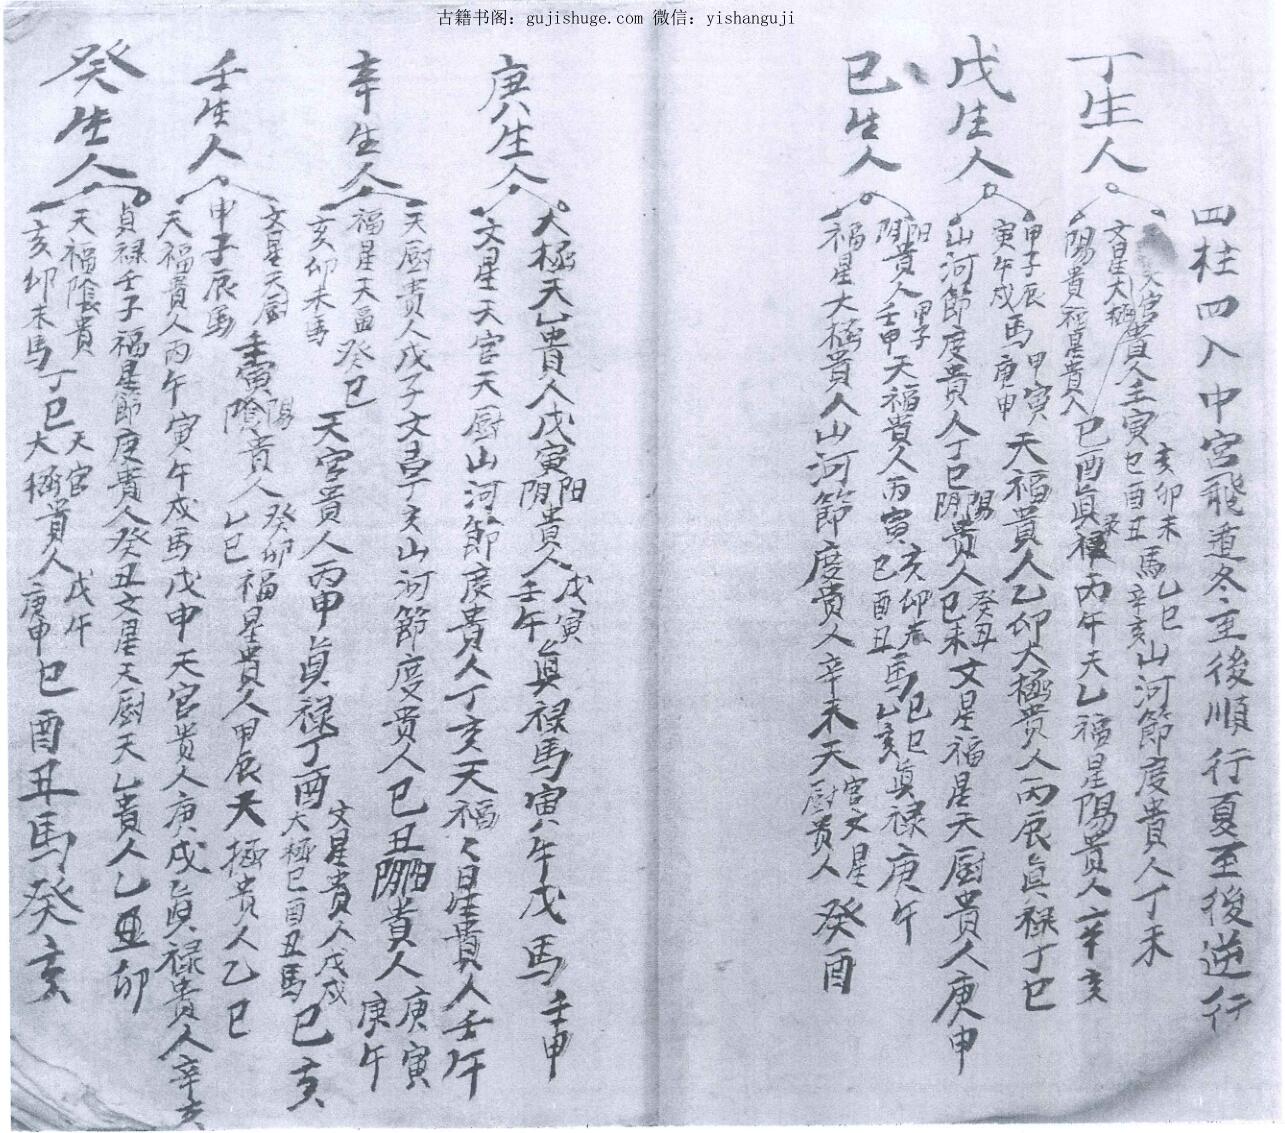 古籍书阁：gujishuge.com 微信：yishanguji
四柱四入中宮飛遁冬至後順行夏至後逆行
丁生人
天官
文星太極貴人壬寅
亥卯未
巳酉丑
馬
乙巳
辛亥
山河節度貴人丁未
陽貴福星貴人
巳酉真禄丙午天乙福星陽貴人辛亥
戊生人
甲子辰
寅午戌
馬
甲寅
庚申
天福貴人乙卯太極貴人丙辰真禄丁巳
山河節度貴人丁巳
陽
阴
貴人
癸丑
己未
文星福星天厨貴人庚申
己生人
阳
阴
貴人
甲子
壬申
天福貴人丙寅
亥卯
巳酉丑
馬
己巳
乙亥
真禄庚午
福星太極貴人山河節度貴人辛未天
官文星
厨貴人
癸酉
庚生人
太極天乙貴人戊寅
阳
阴
貴人
戊寅
壬午
真禄馬寅午戌馬壬申
文星天官天厨山河節度貴人丁亥天福々星貴人壬午
辛生人
天厨貴人戊子文昌子亥山河節度貴人己丑
阳
阴
貴人
庚寅
庚午
福星天
亥卯未馬
癸巳
天官貴人丙申真禄丁酉
文星貴人戊戌
太極巳酉丑馬
己亥
壬生人
文星天厨
申子辰馬
壬寅
陽
陰
貴人
癸卯
乙巳
福星貴人甲辰天極貴人乙巳
天福貴人丙午寅午戌馬戊申天官貴人庚戌真禄貴人辛亥
癸生人
貞禄壬子福星節度貴人癸丑文星天厨天乙貴人乙卯
天福陰貴
亥卯未馬
丁巳
天官
太極貴人
戊午
庚申
巳酉丑馬癸亥